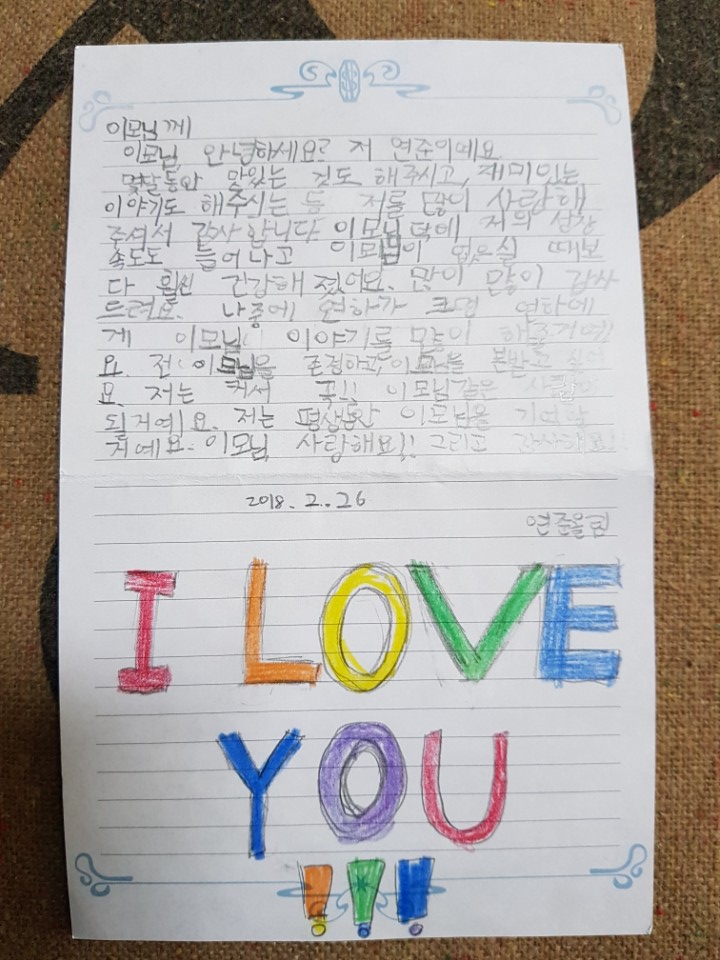 이모님께
이모님, 안녕하세요? 저 연준이예요
몇달동안 맛있는 것도 해주시고, 재미있는
이야기도 해주시는 등 저를 많이 사랑해
주셔서 감사합니다. 이모님덕에 저의 성장
속도도 늘어나고 이모님이 없으실 때보
다 훨씬 건강해졌어요. 많이 많이 감사
드려요. 나중에 연하가 크면 연하에
게 이모님 이야기를 많이 해줄거예
요. 전 이모님을 존경하고, 이모님을 본받고 싶어
요. 저는 커서 꼭!! 이모님같은 사람이
될거예요. 저는 평생동안 이모님을 기억할
거예요. 이모님, 사랑해요!! 그리고 감사해요!
2018. 2. 26
연준올림
I LOVE
YOU
!!!